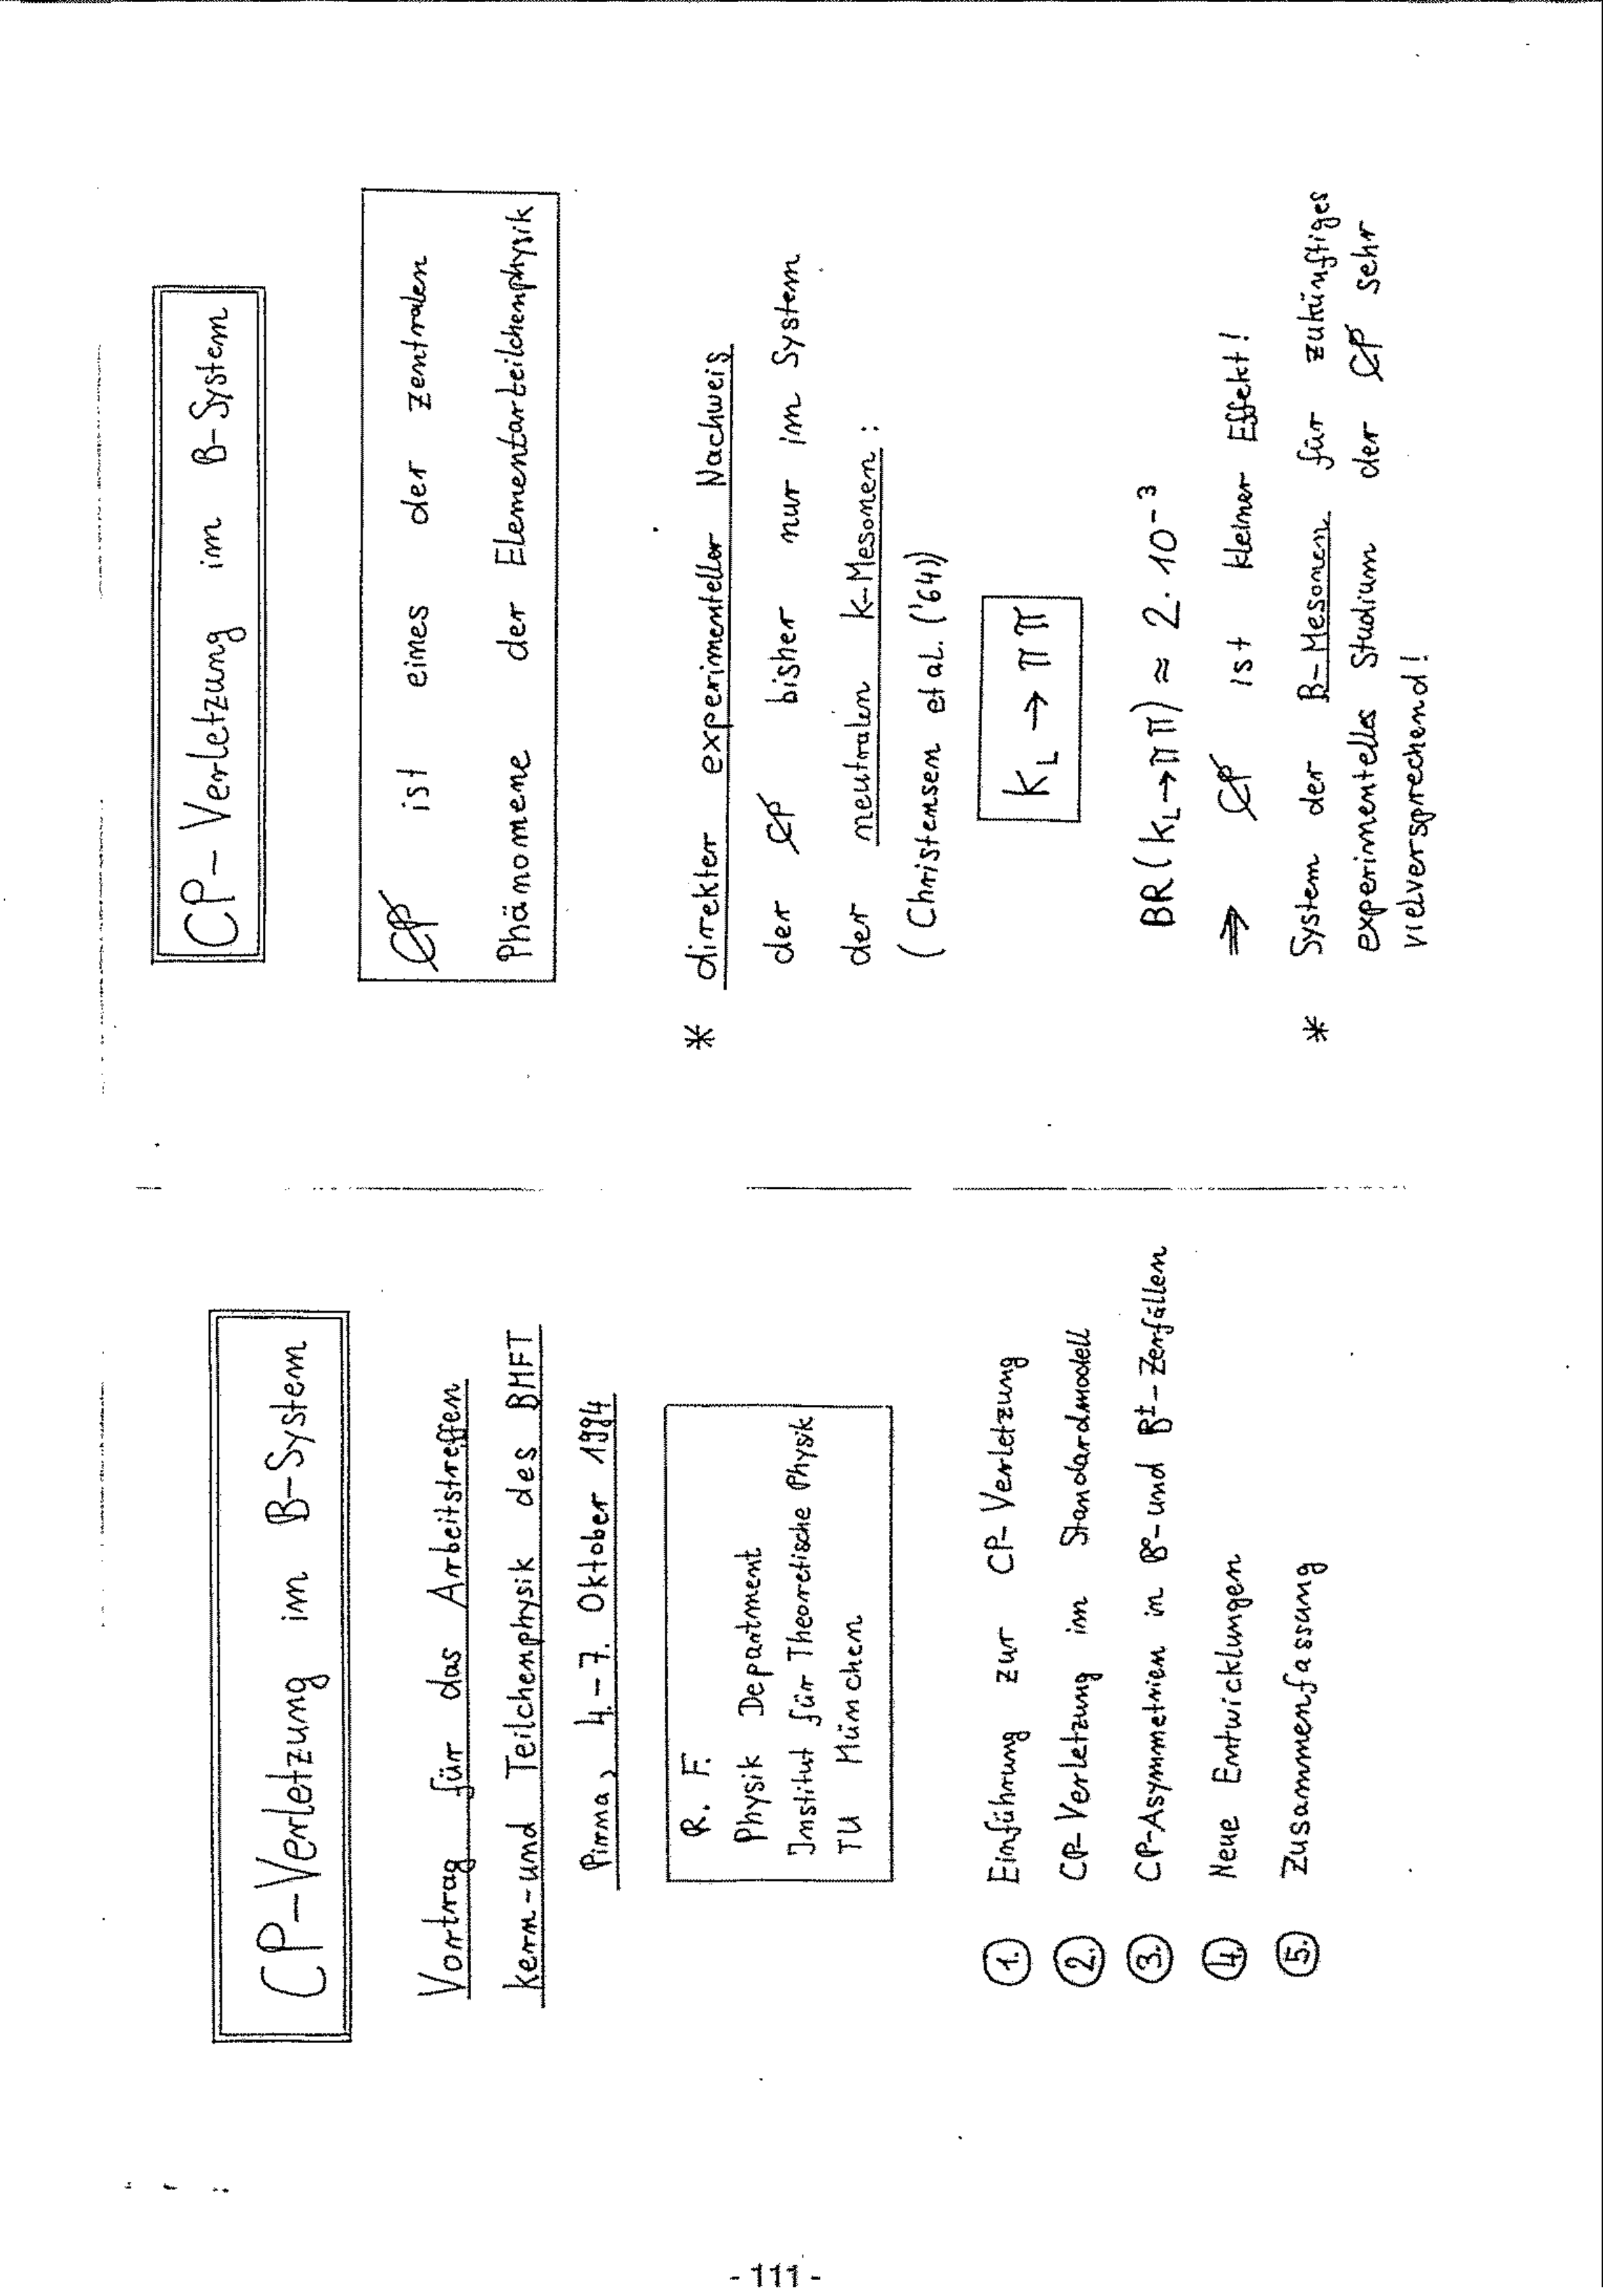 CP-Verletzung im B-System
Vortrag für das Arbeitstreffen
Kern-und Teilchenphysik des BMFT
Pirna, 4.-7. Oktober 1994
R. F.
Physik Department
Institut für Theoretische Physik
TU München
1. Einführung zur CP-Verletzung
2. CP-Verletzung im Standardmodell
3. CP-Asymmetrien in B⁰-und B±-Zerfällen
4. Neue Entwicklungen
5. Zusammenfassung
CP-Verletzung im B-System
C̸P̸ ist eines der zentralen
Phänomene der Elementarteilchenphysik
* direkter experimenteller Nachweis
der C̸P̸ bisher nur im System
der neutralen K-Mesonen:
(Christensen et al. ('64))
K_L → ππ
BR(K_L→ππ) ≈ 2·10⁻³
⇒ C̸P̸ ist kleiner Effekt!
* System der B-Mesonen für zukünftiges
experimentelles Studium der C̸P̸ sehr
vielversprechend!
- 111 -